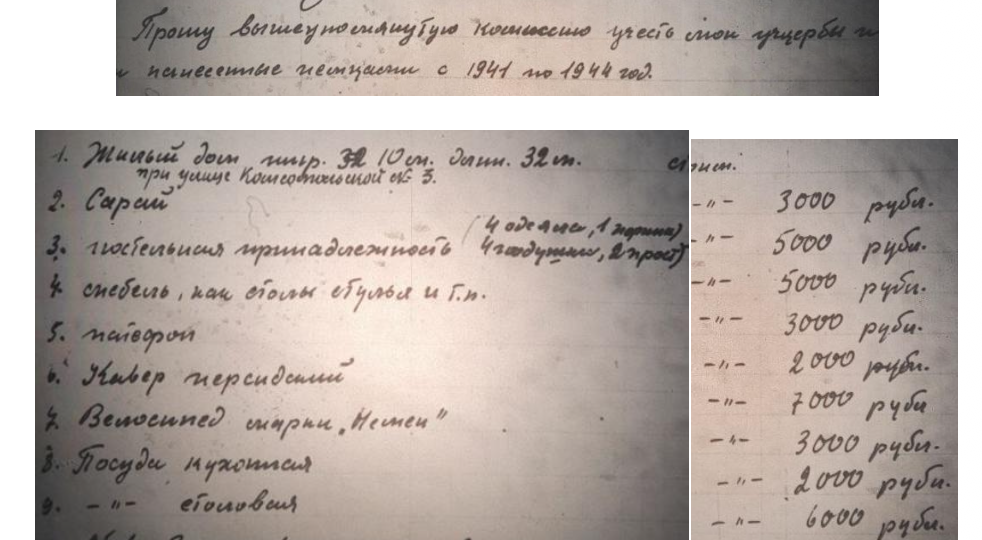 Прошу вышеупомянутую комиссию учесть мои ущербы и
нанесенные немцами с 1941 по 1944 год.
1. Жилый дом шир. 10 м. длин. 32 м.
при улице Комсомольской № 3.
2. Сарай
3. постельная принадлежность (4 одеяла, 1 перина)
4 подушки, 2 прост)
4. мебель, как столы стулья и т.п.
5. патефон
6. Кавер персидский
7. Велосипед марки „Немен"
8. Посуда кухонная
9. -"- столовая
стоим.
-"- 3000 рубл.
-"- 5000 рубл.
-"- 5000 рубл.
-"- 3000 рубл.
-"- 2000 рубл.
-"- 7000 рубл
-"- 3000 рубл.
-"- 2000 рубл.
-"- 6000 рубл.